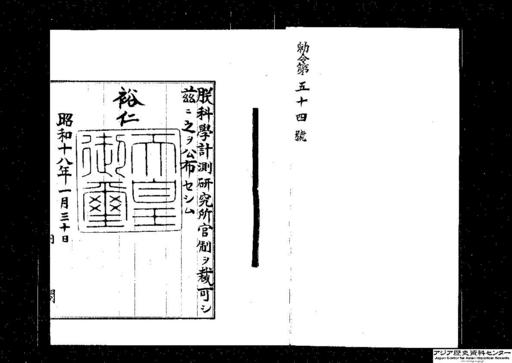 勅令第五十四號
朕科學計測研究所官制ヲ裁可シ
茲ニ之ヲ公布セシム
裕仁
天皇御璽
昭和十八年一月三十日
内閣
アジア歴史資料センター
Japan Center for Asian Historical Records